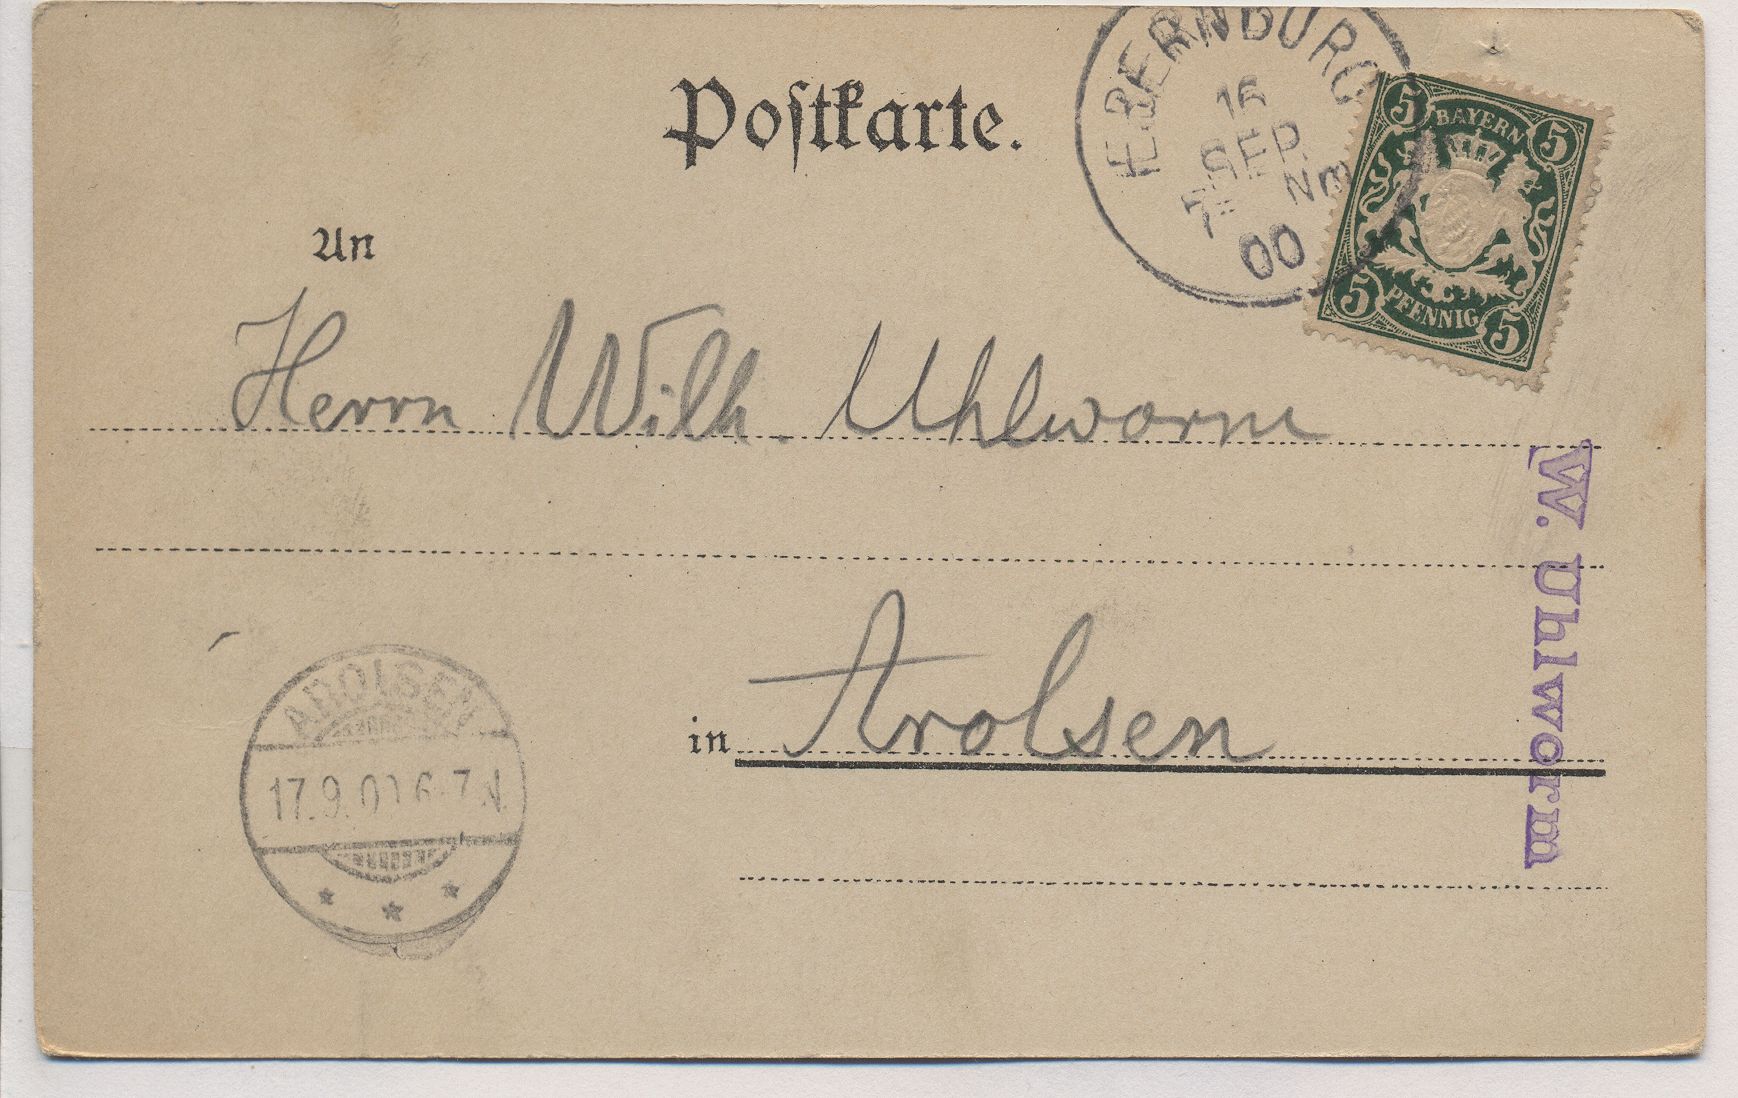 Postkarte.
H. BERNBURG
16
SEP.
7 Nm
00
5 BAYERN 5
5 PFENNIG 5
An
Herrn Wilh. Uhlworm
in Arolsen
W. Uhlworm
AROLSEN
17.9.00 6-7 N.